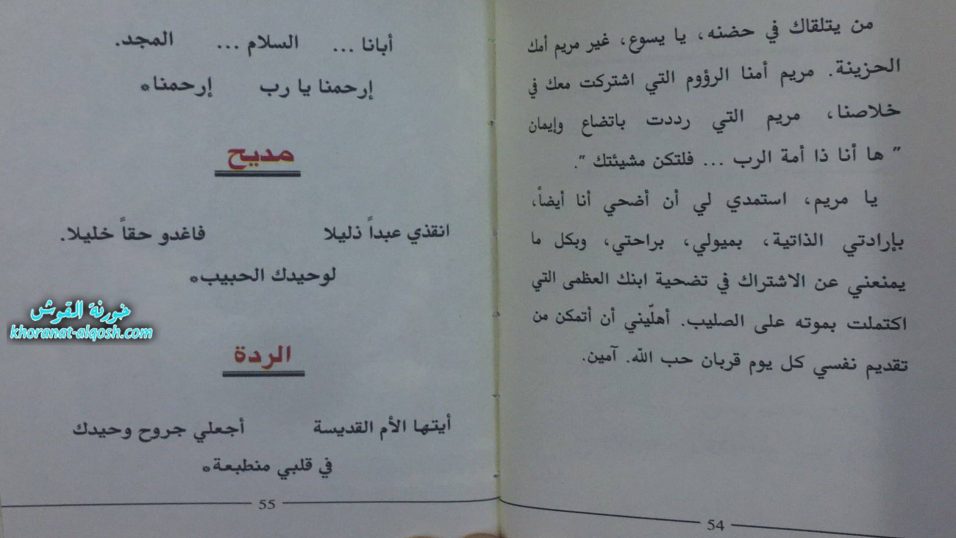 من يتلقاك في حضنه، يا يسوع، غير مريم أمك
الحزينة. مريم أمنا الرؤوم التي اشتركت معك في
خلاصنا، مريم التي رددت باتضاع وإيمان
" ها أنا ذا أمة الرب ... فلتكن مشيئتك ".
يا مريم، استمدي لي أن أضحي أنا أيضاً،
بإرادتي الذاتية، بميولي، براحتي، وبكل ما
يمنعني عن الاشتراك في تضحية ابنك العظمى التي
اكتملت بموته على الصليب. أهلّيني أن أتمكن من
تقديم نفسي كل يوم قربان حب الله. آمين.
54
أبانا ... السلام ... المجد.
إرحمنا يا رب إرحمنا*
مديح
انقذي عبداً ذليلا فاغدو حقاً خليلا.
لوحيدك الحبيب*
الردة
أيتها الأم القديسة أجعلي جروح وحيدك
في قلبي منطبعة*
55
خورنة القوش
khoranat-alqosh.com